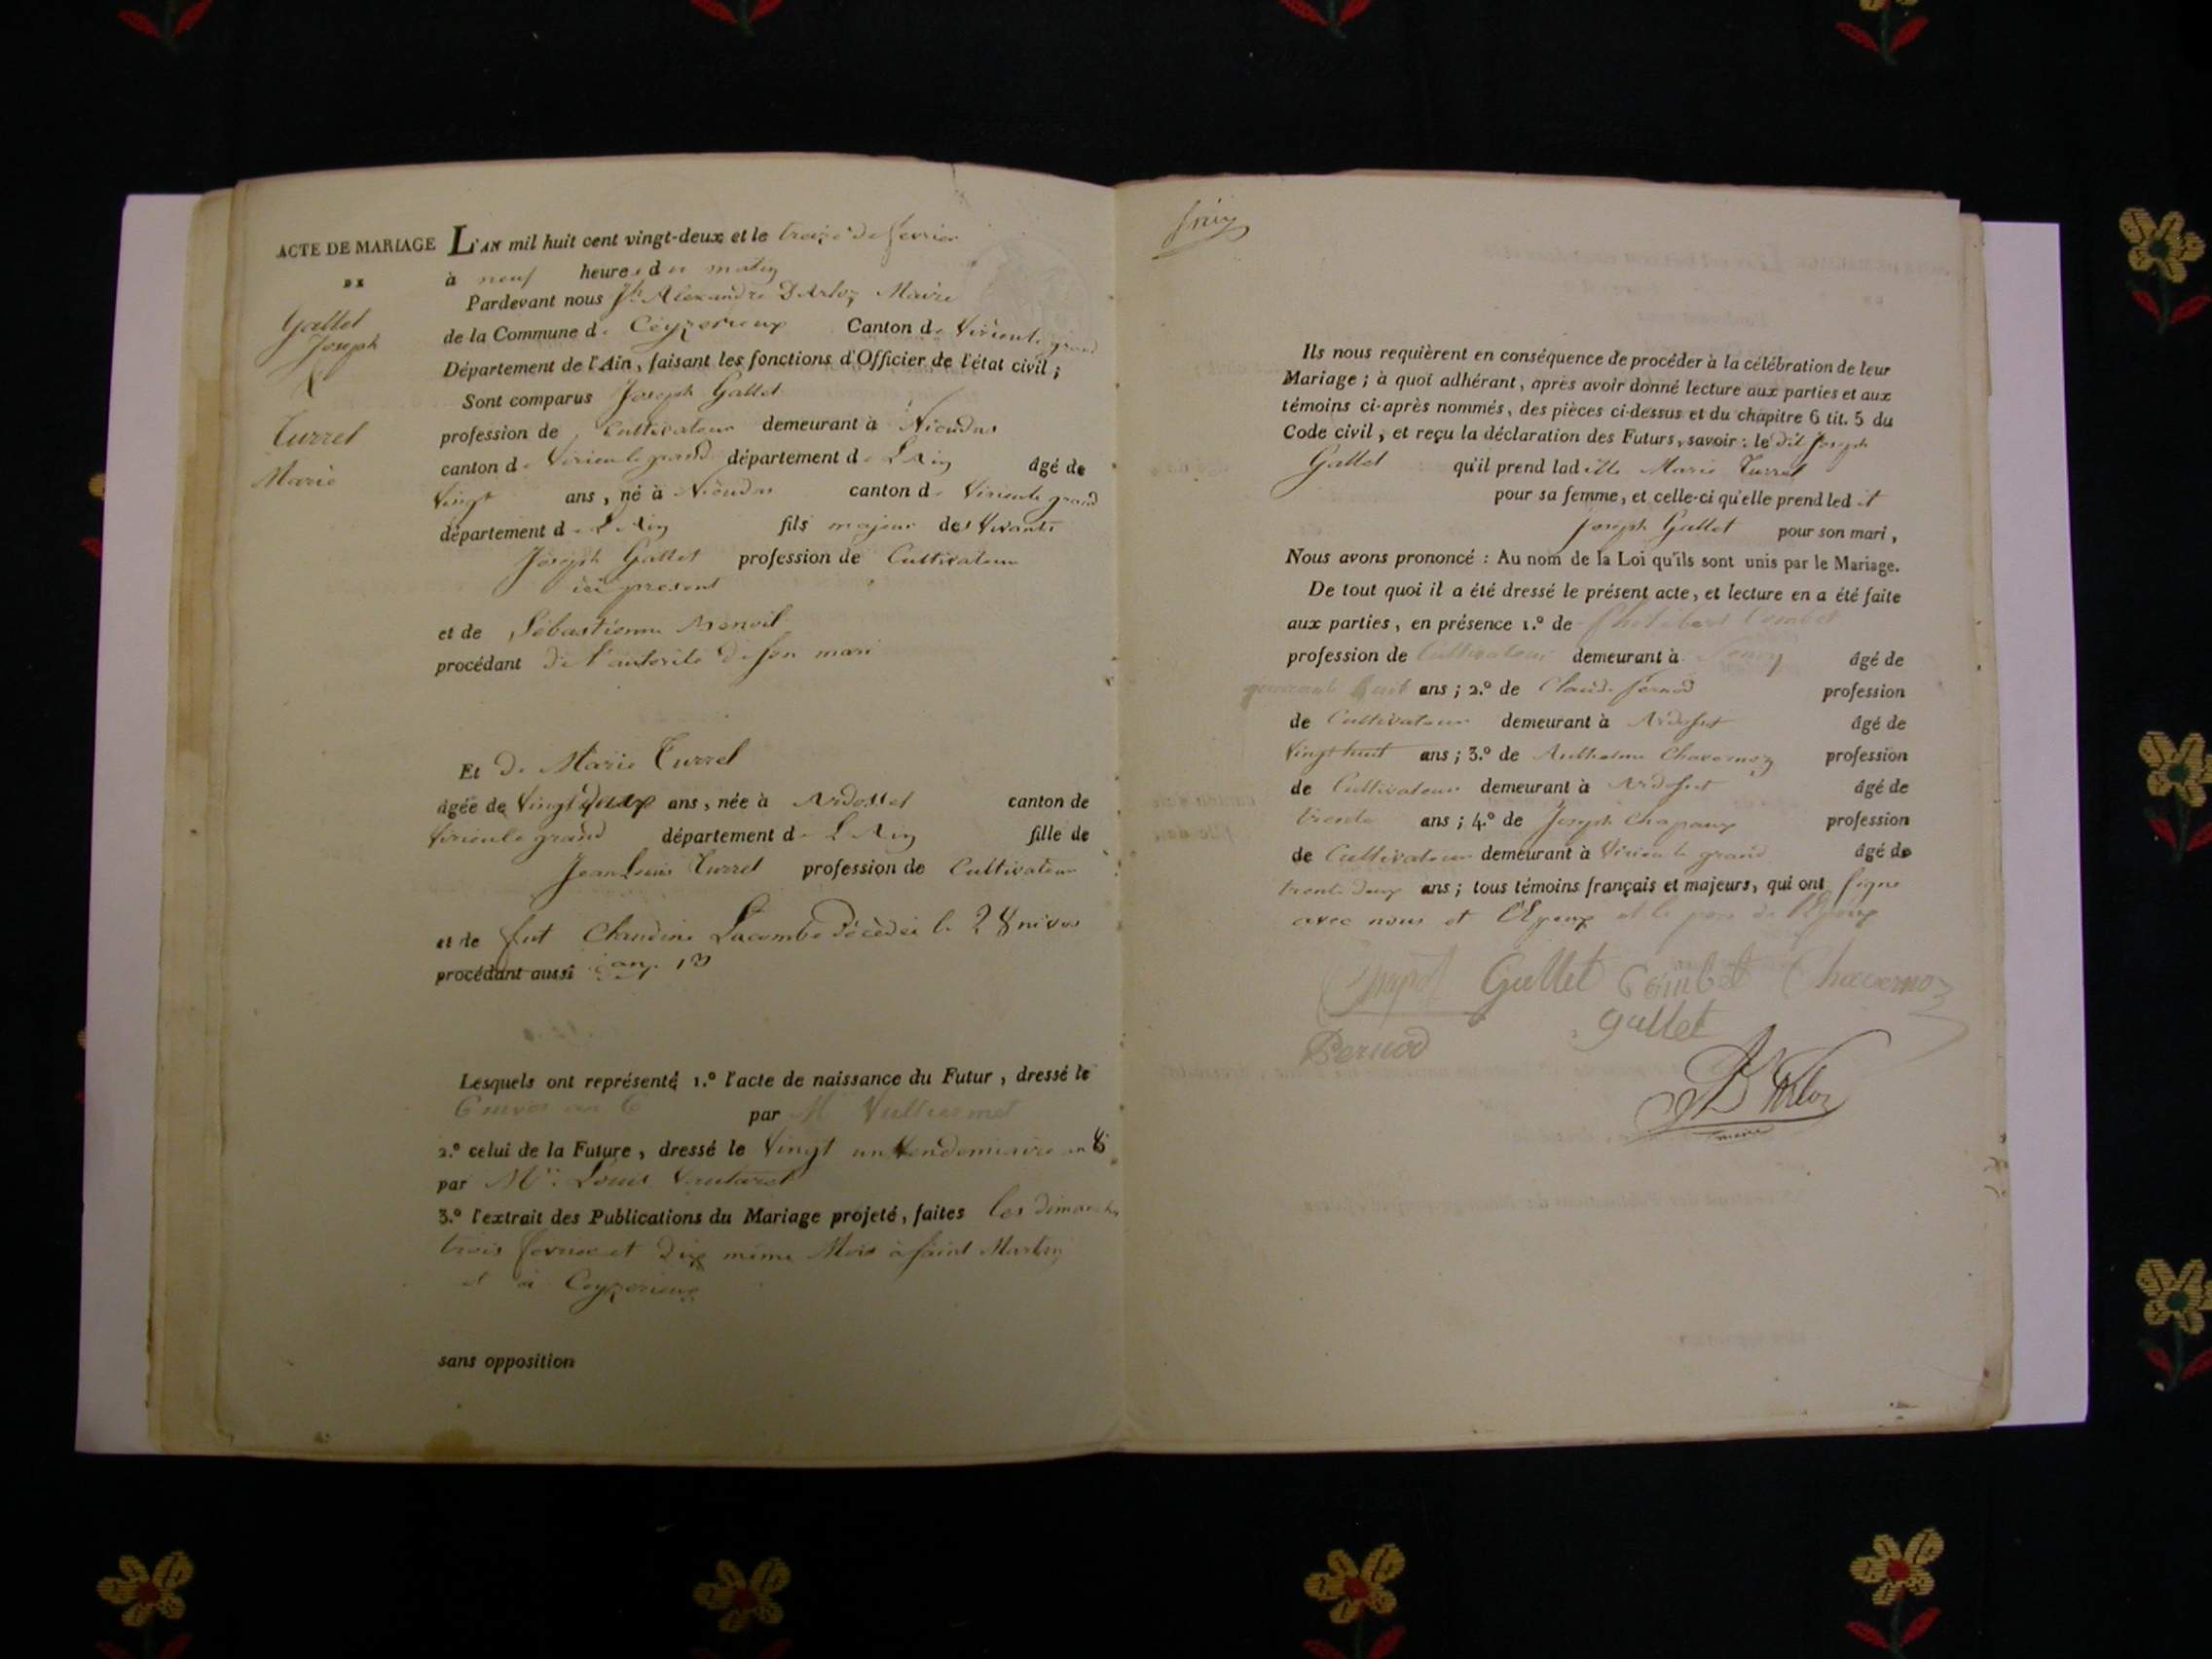 ACTE DE MARIAGE
DE
Gallet
Joseph
&
Turrel
Marie
L'AN mil huit cent vingt-deux et le treize de fevrier
à neuf heures du matin
Pardevant nous Jh Alexandre D'Arloz Maire
de la Commune de Ceyzerieux Canton de Virieu le grand
Département de l'Ain, faisant les fonctions d'Officier de l'état civil ;
Sont comparus Joseph Gallet
profession de Cultivateur demeurant à
canton de Virieu le grand département de L'Ain âgé de
Vingt ans, né à canton de Virieu le grand
département de L'Ain fils majeur des Vivants
Joseph Gallet profession de Cultivateur
ici present
et de Sébastienne
procédant de l'autorité de son mari
Et de Marie Turrel
âgée de Vingt deux ans, née à Ardosset canton de
Virieu le grand département de L'Ain fille de
Jean Louis Turrel profession de Cultivateur
et de fut Claudine Lacombe décédée le 28 nivos
procédant aussi an 13
Lesquels ont représenté 1.° l'acte de naissance du Futur, dressé le
6 nivos an 6 par M
2.° celui de la Future, dressé le Vingt un Vendemiaire an 8
par Mr Louis
3.° l'extrait des Publications du Mariage projeté, faites les dimanches
trois fevrier et dix même Mois à saint Martin
et à Ceyzerieux
sans opposition
Ils nous requièrent en conséquence de procéder à la célébration de leur
Mariage ; à quoi adhérant, après avoir donné lecture aux parties et aux
témoins ci-après nommés, des pièces ci-dessus et du chapitre 6 tit. 5 du
Code civil, et reçu la déclaration des Futurs, savoir : le dit Joseph
Gallet qu'il prend laditte Marie Turrel
pour sa femme, et celle-ci qu'elle prend ledit
Joseph Gallet pour son mari,
Nous avons prononcé : Au nom de la Loi qu'ils sont unis par le Mariage.
De tout quoi il a été dressé le présent acte, et lecture en a été faite
aux parties, en présence 1.° de Combet
profession de Cultivateur demeurant à âgé de
huit ans ; 2.° de Claude Pernod profession
de Cultivateur demeurant à Ardosset âgé de
Vingt huit ans ; 3.° de Anthelme Chavernoz profession
de Cultivateur demeurant à Ardosset âgé de
trente ans ; 4.° de Joseph Chapaux profession
de Cultivateur demeurant à Virieu le grand âgé de
trente deux ans ; tous témoins français et majeurs, qui ont signé
avec nous et l'Epoux et le père de l'Epoux
Gallet Combet Chavernoz
Pernod gallet
D'Arloz
maire